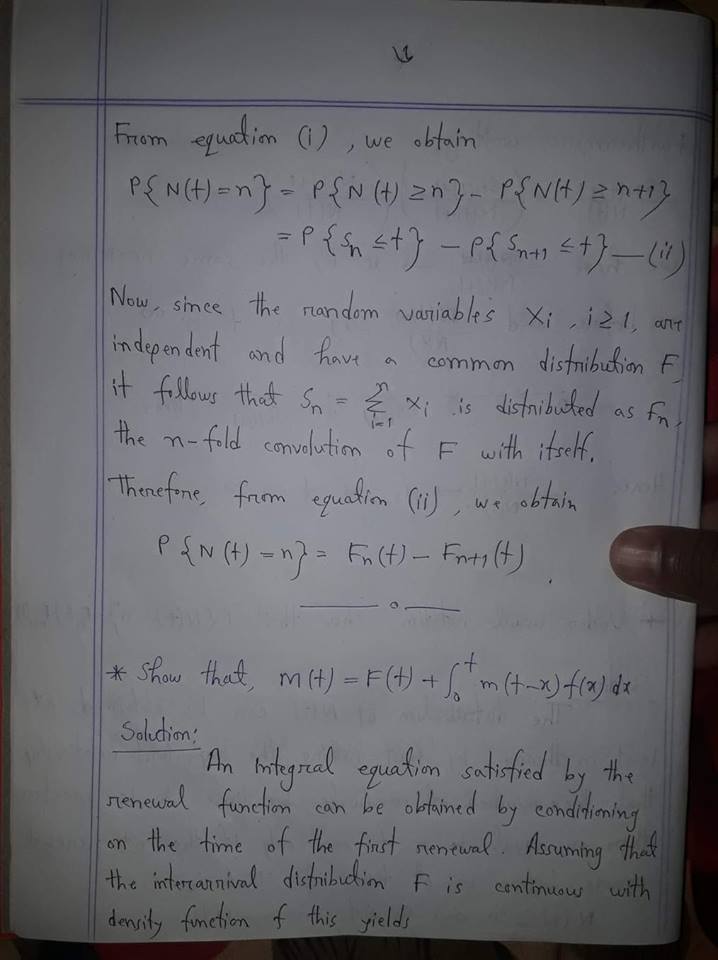 From equation (i), we obtain
P{N(t)=n} = P{N(t) ≥ n} - P{N(t) ≥ n+1}
= P{Sₙ ≤ t} - P{Sₙ₊₁ ≤ t} — (ii)
Now, since the random variables Xᵢ, i ≥ 1, are
independent and have a common distribution F,
it follows that Sₙ = ∑ᵢ₌₁ⁿ Xᵢ is distributed as Fₙ,
the n-fold convolution of F with itself.
Therefore, from equation (ii), we obtain
P{N(t)=n} = Fₙ(t) - Fₙ₊₁(t).
* Show that, m(t) = F(t) + ∫₀ᵗ m(t-x) f(x) dx
Solution:
An integral equation satisfied by the
renewal function can be obtained by conditioning
on the time of the first renewal. Assuming that
the interarrival distribution F is continuous with
density function f this yields